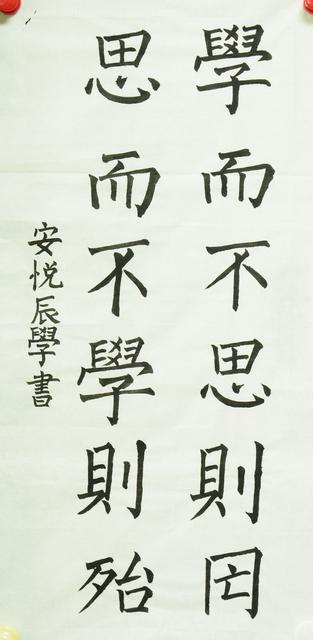 學而不思則罔
思而不學則殆
安悦辰學書